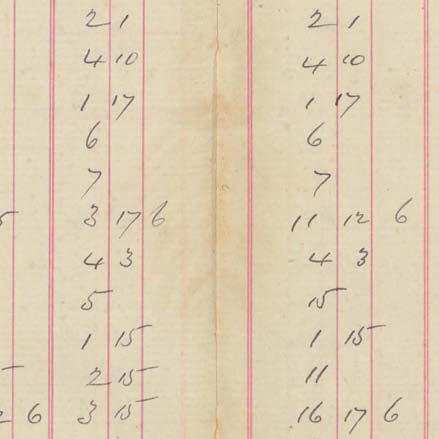 2 1 2 1
4 10 4 10
1 17 1 17
6 6
7 7
5 3 17 6 11 12 6
4 3 4 3
5 15
1 15 1 15
2 15 11
2 6 3 15 16 17 6